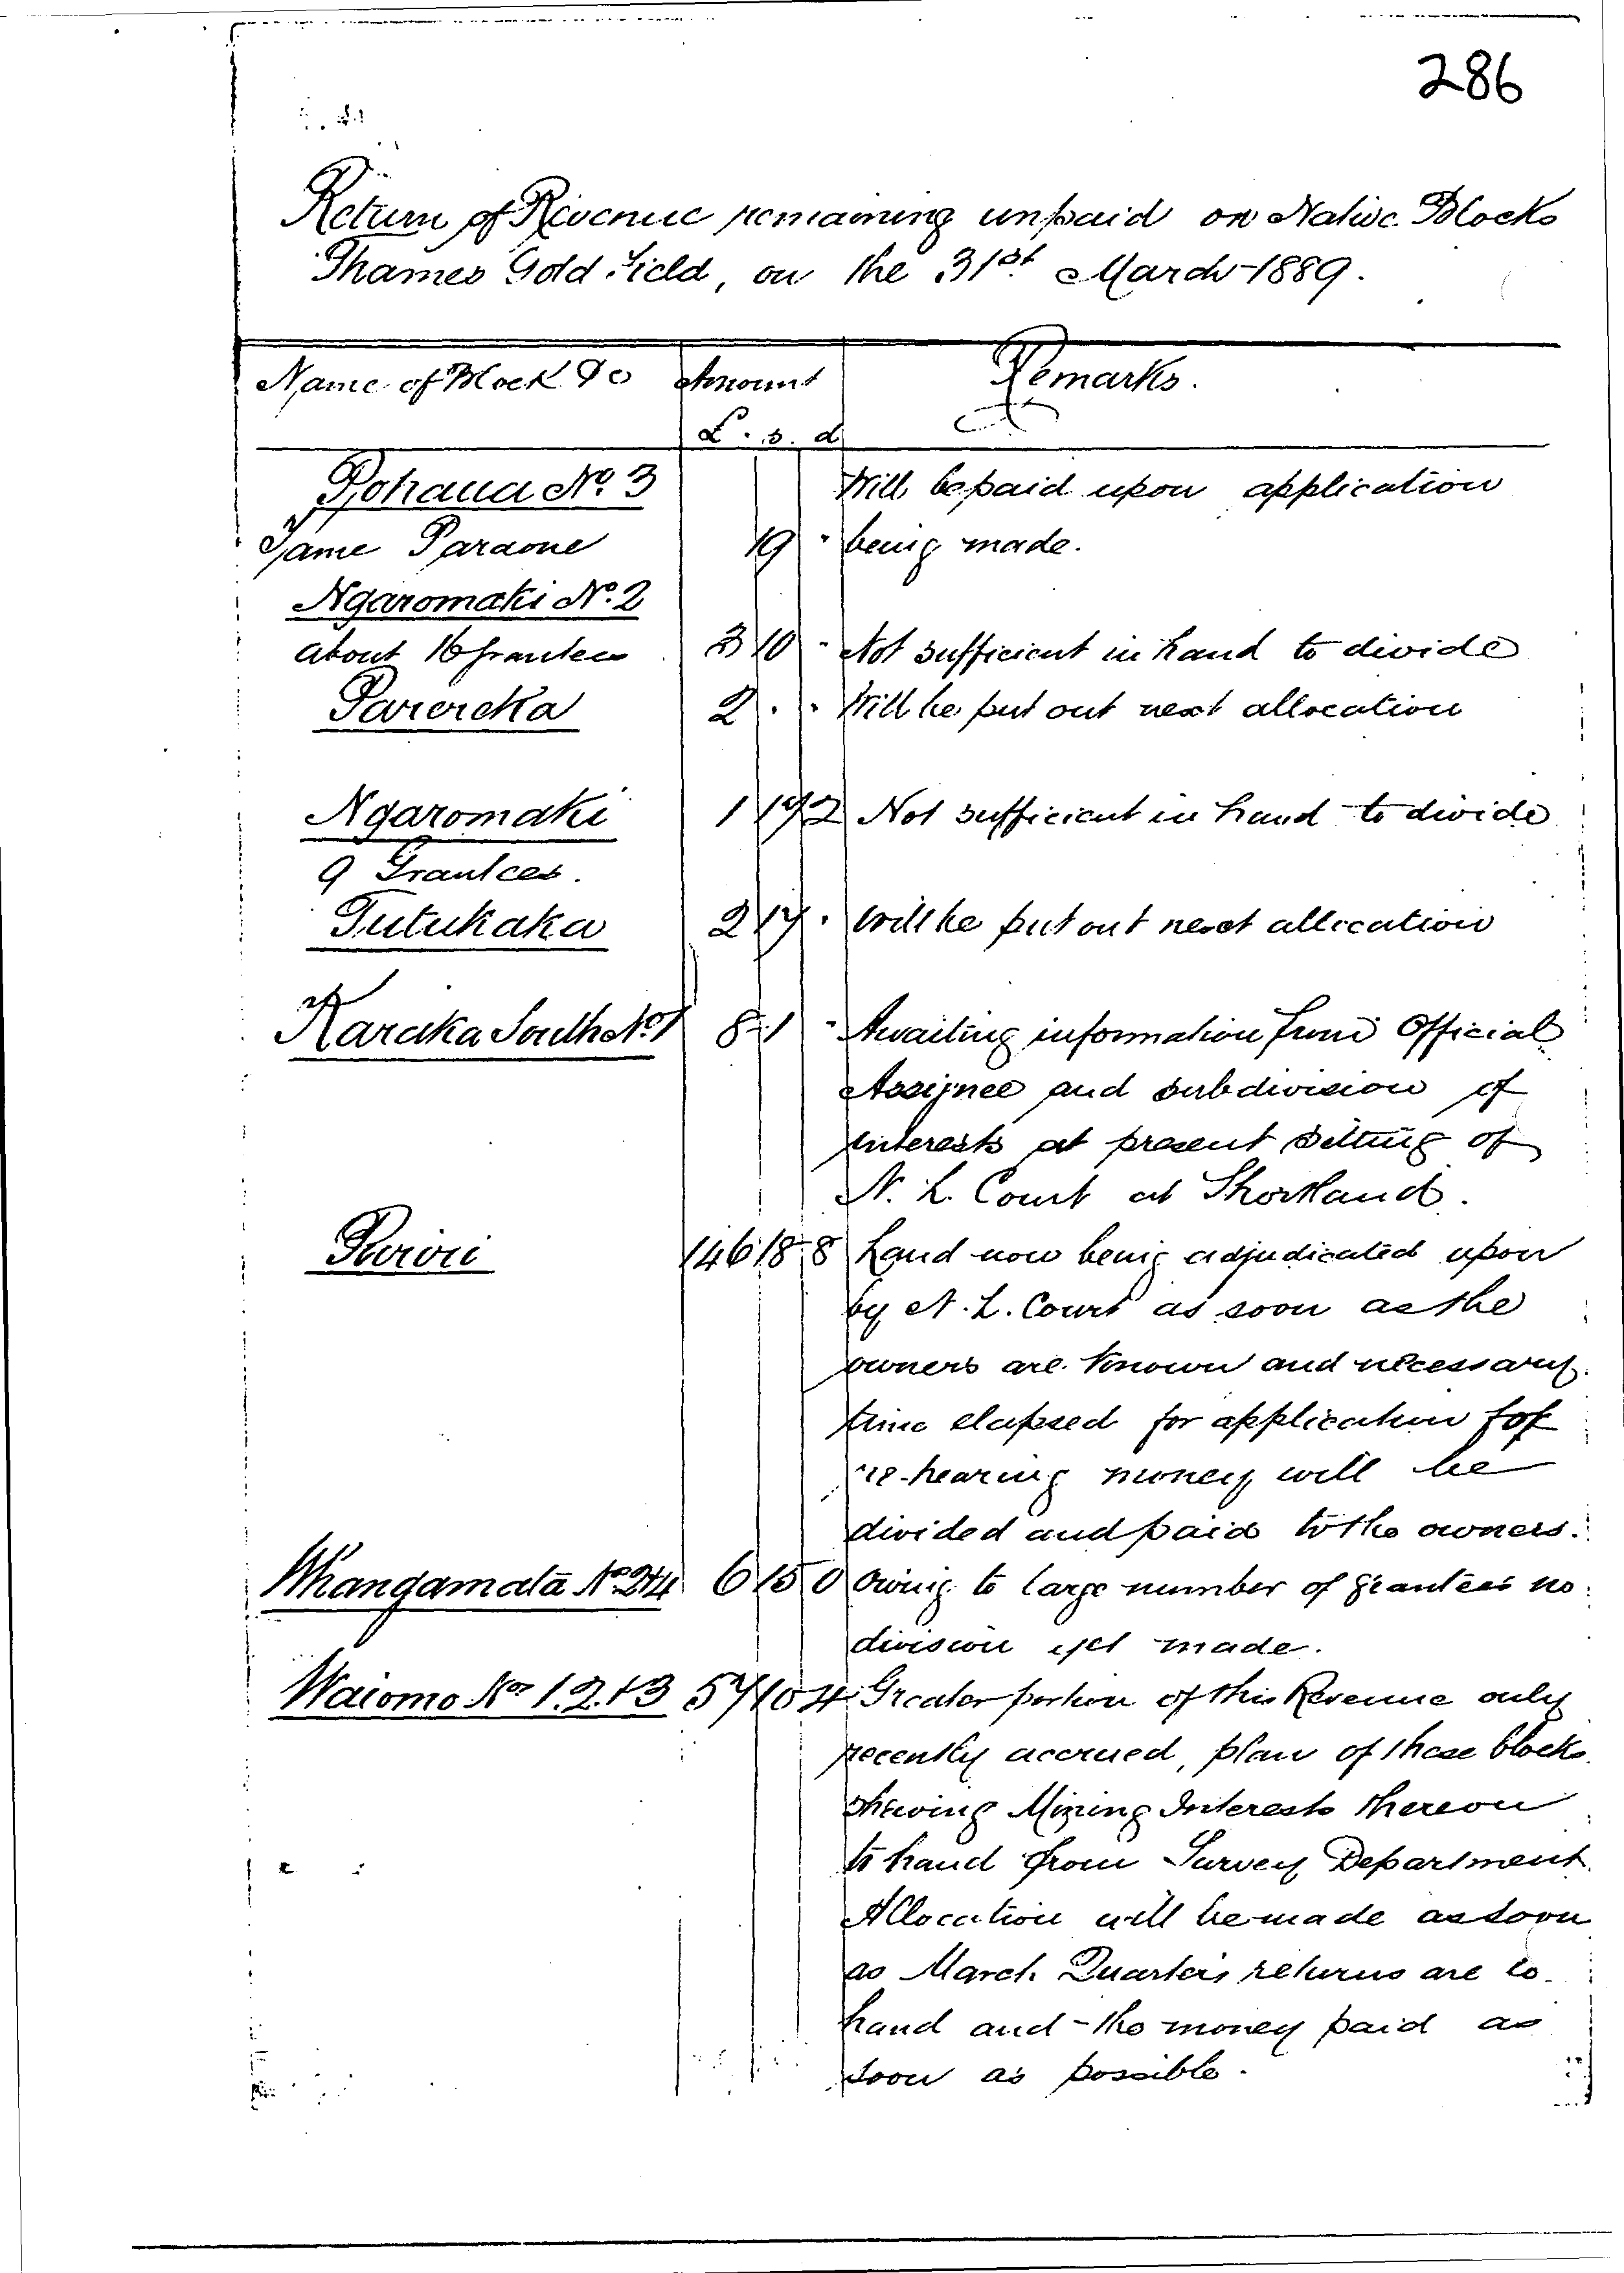 286
Return of Revenue remaining unpaid on Native Blocks
Thames Gold Field, on the 31st March 1889.
Name of Block &c Amount Remarks.
£. s. d
Pohaua No. 3 Will be paid upon application
Paraone 19 - being made.
Ngaromaki No. 2
about 16 grantees 3 10 - Not sufficient in hand to divide
Parereka 2 . . Will be put out next allocation
Ngaromaki 1 2 Not sufficient in hand to divide
9 Grantees.
Tutukaka 2 17 . Will be put out next allocation
Karaka South No. 1 8 1 - Awaiting information from Official
Assignee and subdivision of
interests at present sitting of
N. L. Court at Shortland.
146 18 8 Land now being adjudicated upon
by N. L. Court as soon as the
owners are known and necessary
time elapsed for application for
re-hearing money will be
divided and paid to the owners.
Whangamata No. 6 15 0 Owing to large number of grantees no
division yet made.
Waiomo Nos 1. 2. + 3 57 10 4 Greater portion of this Revenue only
recently accrued, plan of these blocks
shewing Mining Interests thereon
to hand from Survey Department.
Allocation will be made as soon
as March Quarters returns are to
hand and the money paid as
soon as possible.